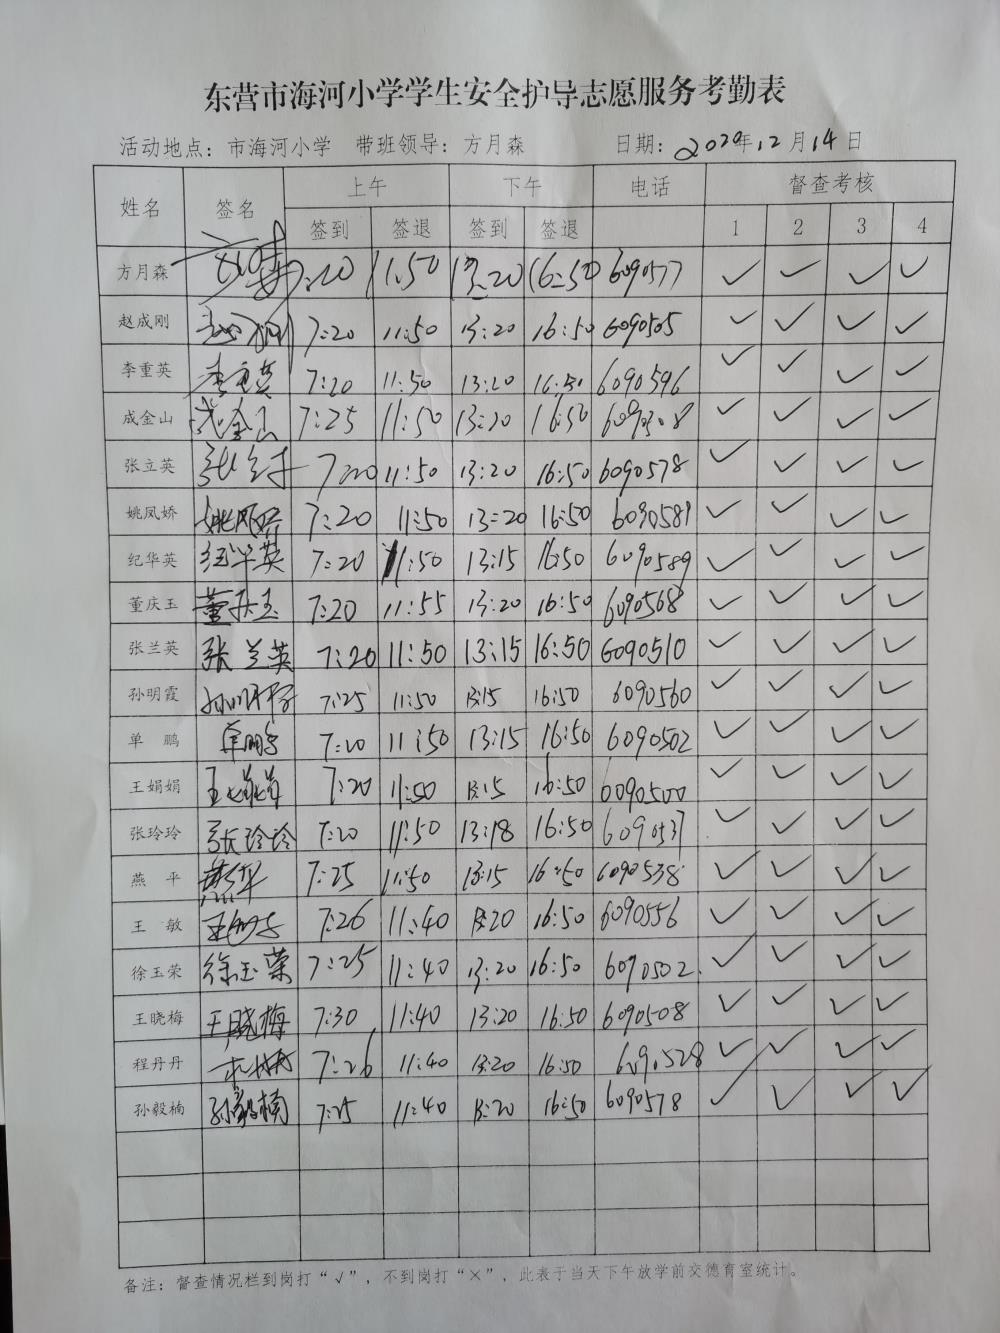 东营市海河小学学生安全护导志愿服务考勤表
活动地点：市海河小学 带班领导：方月森 日期：2020年12月14日
姓名 签名 上午 下午 电话 督查考核
签到 签退 签到 签退 1 2 3 4
方月森 7:20 11:50 13:20 16:50 6090577 ✓ ✓ ✓ ✓
赵成刚 赵成刚 7:20 11:50 13:20 16:50 6090505 ✓ ✓ ✓ ✓
李重英 李重英 7:20 11:50 13:20 16:50 6090596 ✓ ✓ ✓ ✓
成金山 成金山 7:25 11:50 13:20 16:50 ✓ ✓ ✓ ✓
张立英 7:20 11:50 13:20 16:50 6090578 ✓ ✓ ✓ ✓
姚凤娇 姚凤娇 7:20 11:50 13:20 16:50 6090581 ✓ ✓ ✓ ✓
纪华英 纪华英 7:20 11:50 13:15 16:50 6090589 ✓ ✓ ✓ ✓
董庆玉 董庆玉 7:20 11:55 13:20 16:50 6090568 ✓ ✓ ✓ ✓
张兰英 张兰英 7:20 11:50 13:15 16:50 6090510 ✓ ✓ ✓ ✓
孙明霞 孙明霞 7:25 11:50 13:15 16:50 6090560 ✓ ✓ ✓ ✓
单 鹏 单鹏 7:20 11:50 13:15 16:50 6090502 ✓ ✓ ✓ ✓
王娟娟 王娟娟 7:20 11:50 13:15 16:50 6090500 ✓ ✓ ✓ ✓
张玲玲 张玲玲 7:20 11:50 13:18 16:50 6090537 ✓ ✓ ✓ ✓
燕 平 燕平 7:25 11:50 13:15 16:50 6090538 ✓ ✓ ✓ ✓
王 敏 王敏 7:26 11:40 13:20 16:50 6090556 ✓ ✓ ✓ ✓
徐玉荣 徐玉荣 7:25 11:40 13:20 16:50 6090502 ✓ ✓ ✓ ✓
王晓梅 王晓梅 7:30 11:40 13:20 16:50 6090508 ✓ ✓ ✓ ✓
程丹丹 7:26 11:40 13:20 16:50 6090528 ✓ ✓ ✓ ✓
孙毅楠 孙毅楠 7:25 11:40 13:20 16:50 6090578 ✓ ✓ ✓ ✓
备注：督查情况栏到岗打“√”，不到岗打“×”，此表于当天下午放学前交德育室统计。